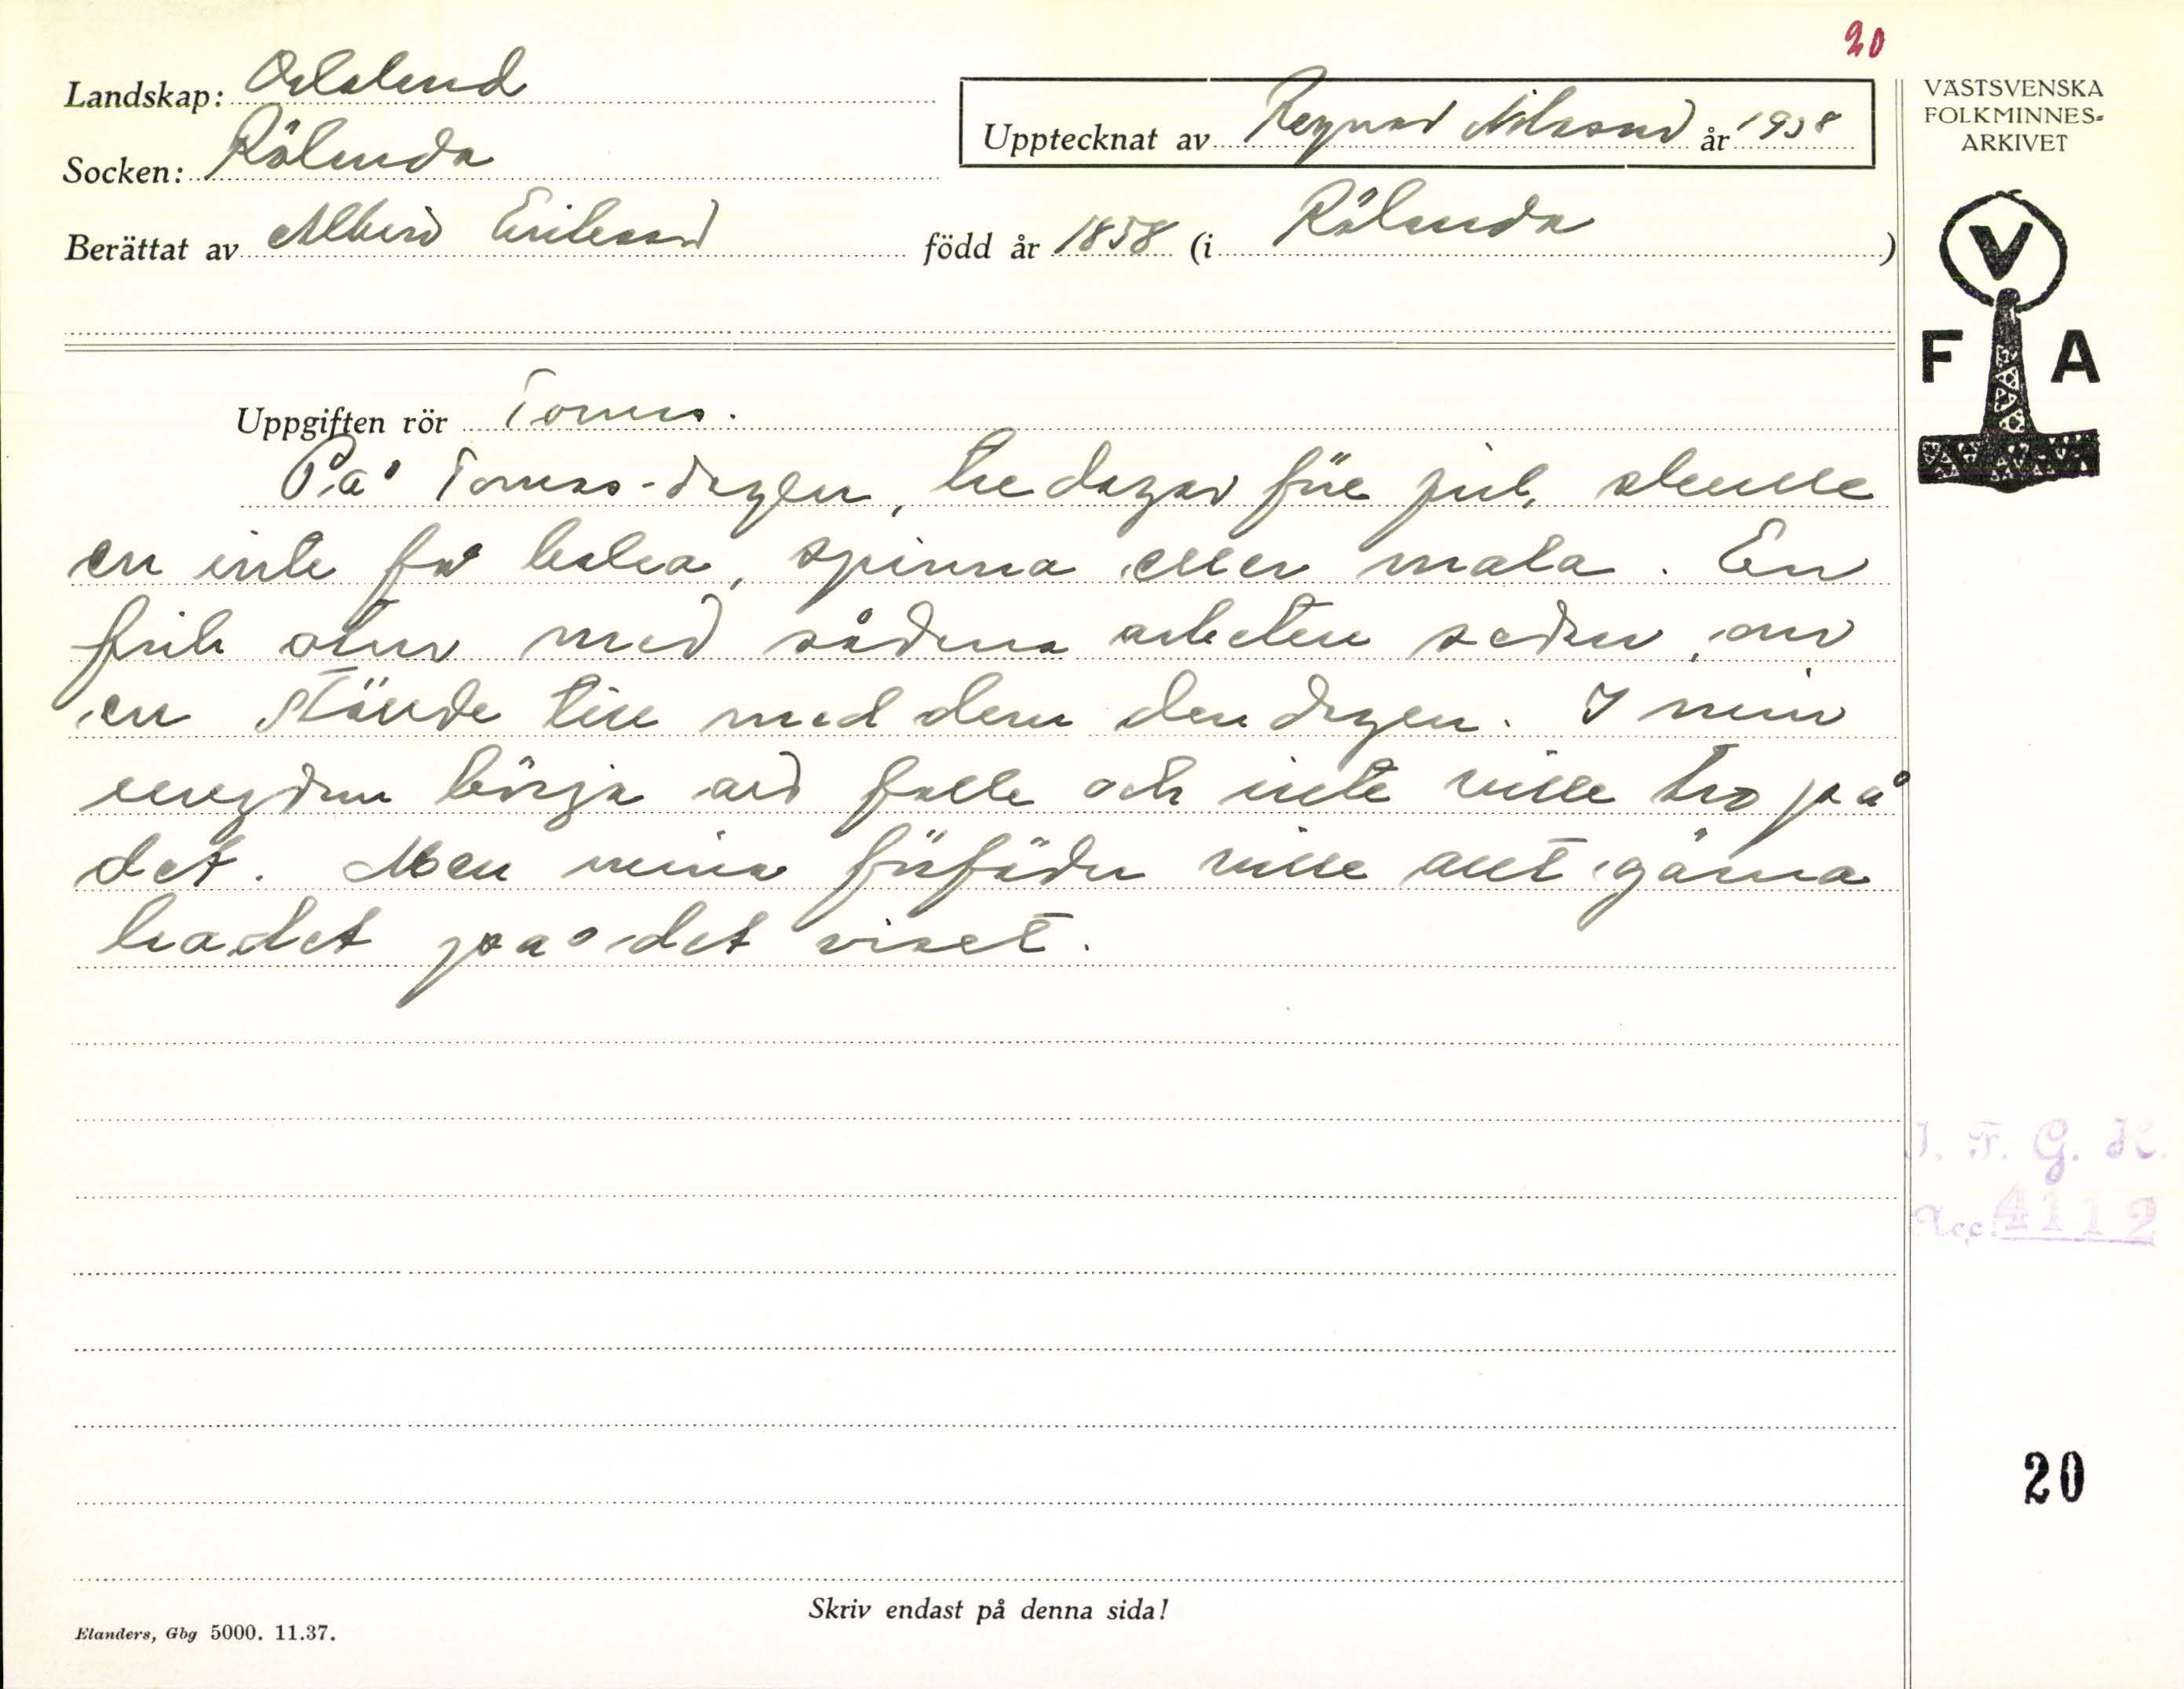 20
Landskap: Dalsland
Socken: Rölanda
Upptecknat av Ragnar Nilsson år 1938
Berättat av Albert Eriksson född år 1858 (i Rölanda)
VÄSTSVENSKA
FOLKMINNES-
ARKIVET
V
F A
Uppgiften rör Tomas.
På Tomas-dagen, tre dagar före jul, skulle
en inte få baka, spinna eller mala. En
fick otur med sådana arbeten sedan, om
en stände till med dem den dagen. I min
ungdom börja ad folk och inte ville tro på
det. Men mina förfäder ville allt gärna
ha det på det viset.
I. F. G. H.
Acc. 4112
20
Skriv endast på denna sida!
Elanders, Gbg 5000. 11.37.